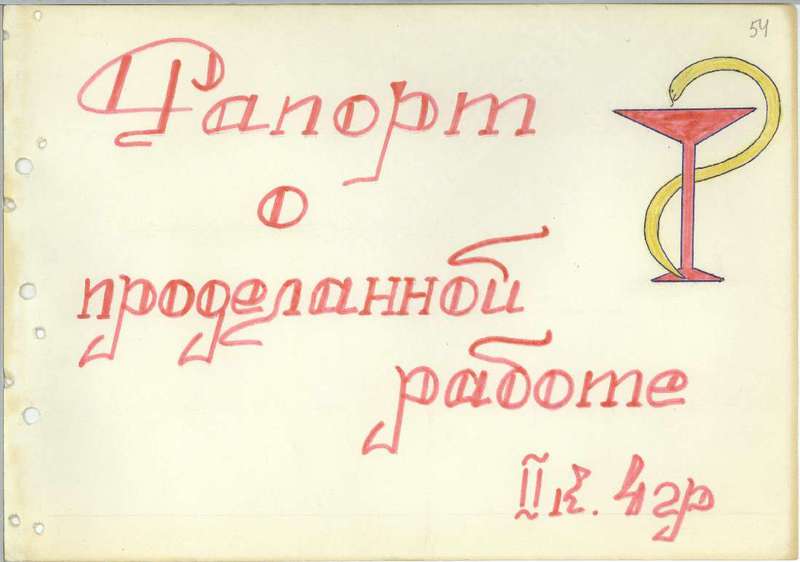 54
Рапорт
о
проделанной
работе
II к. 4 гр